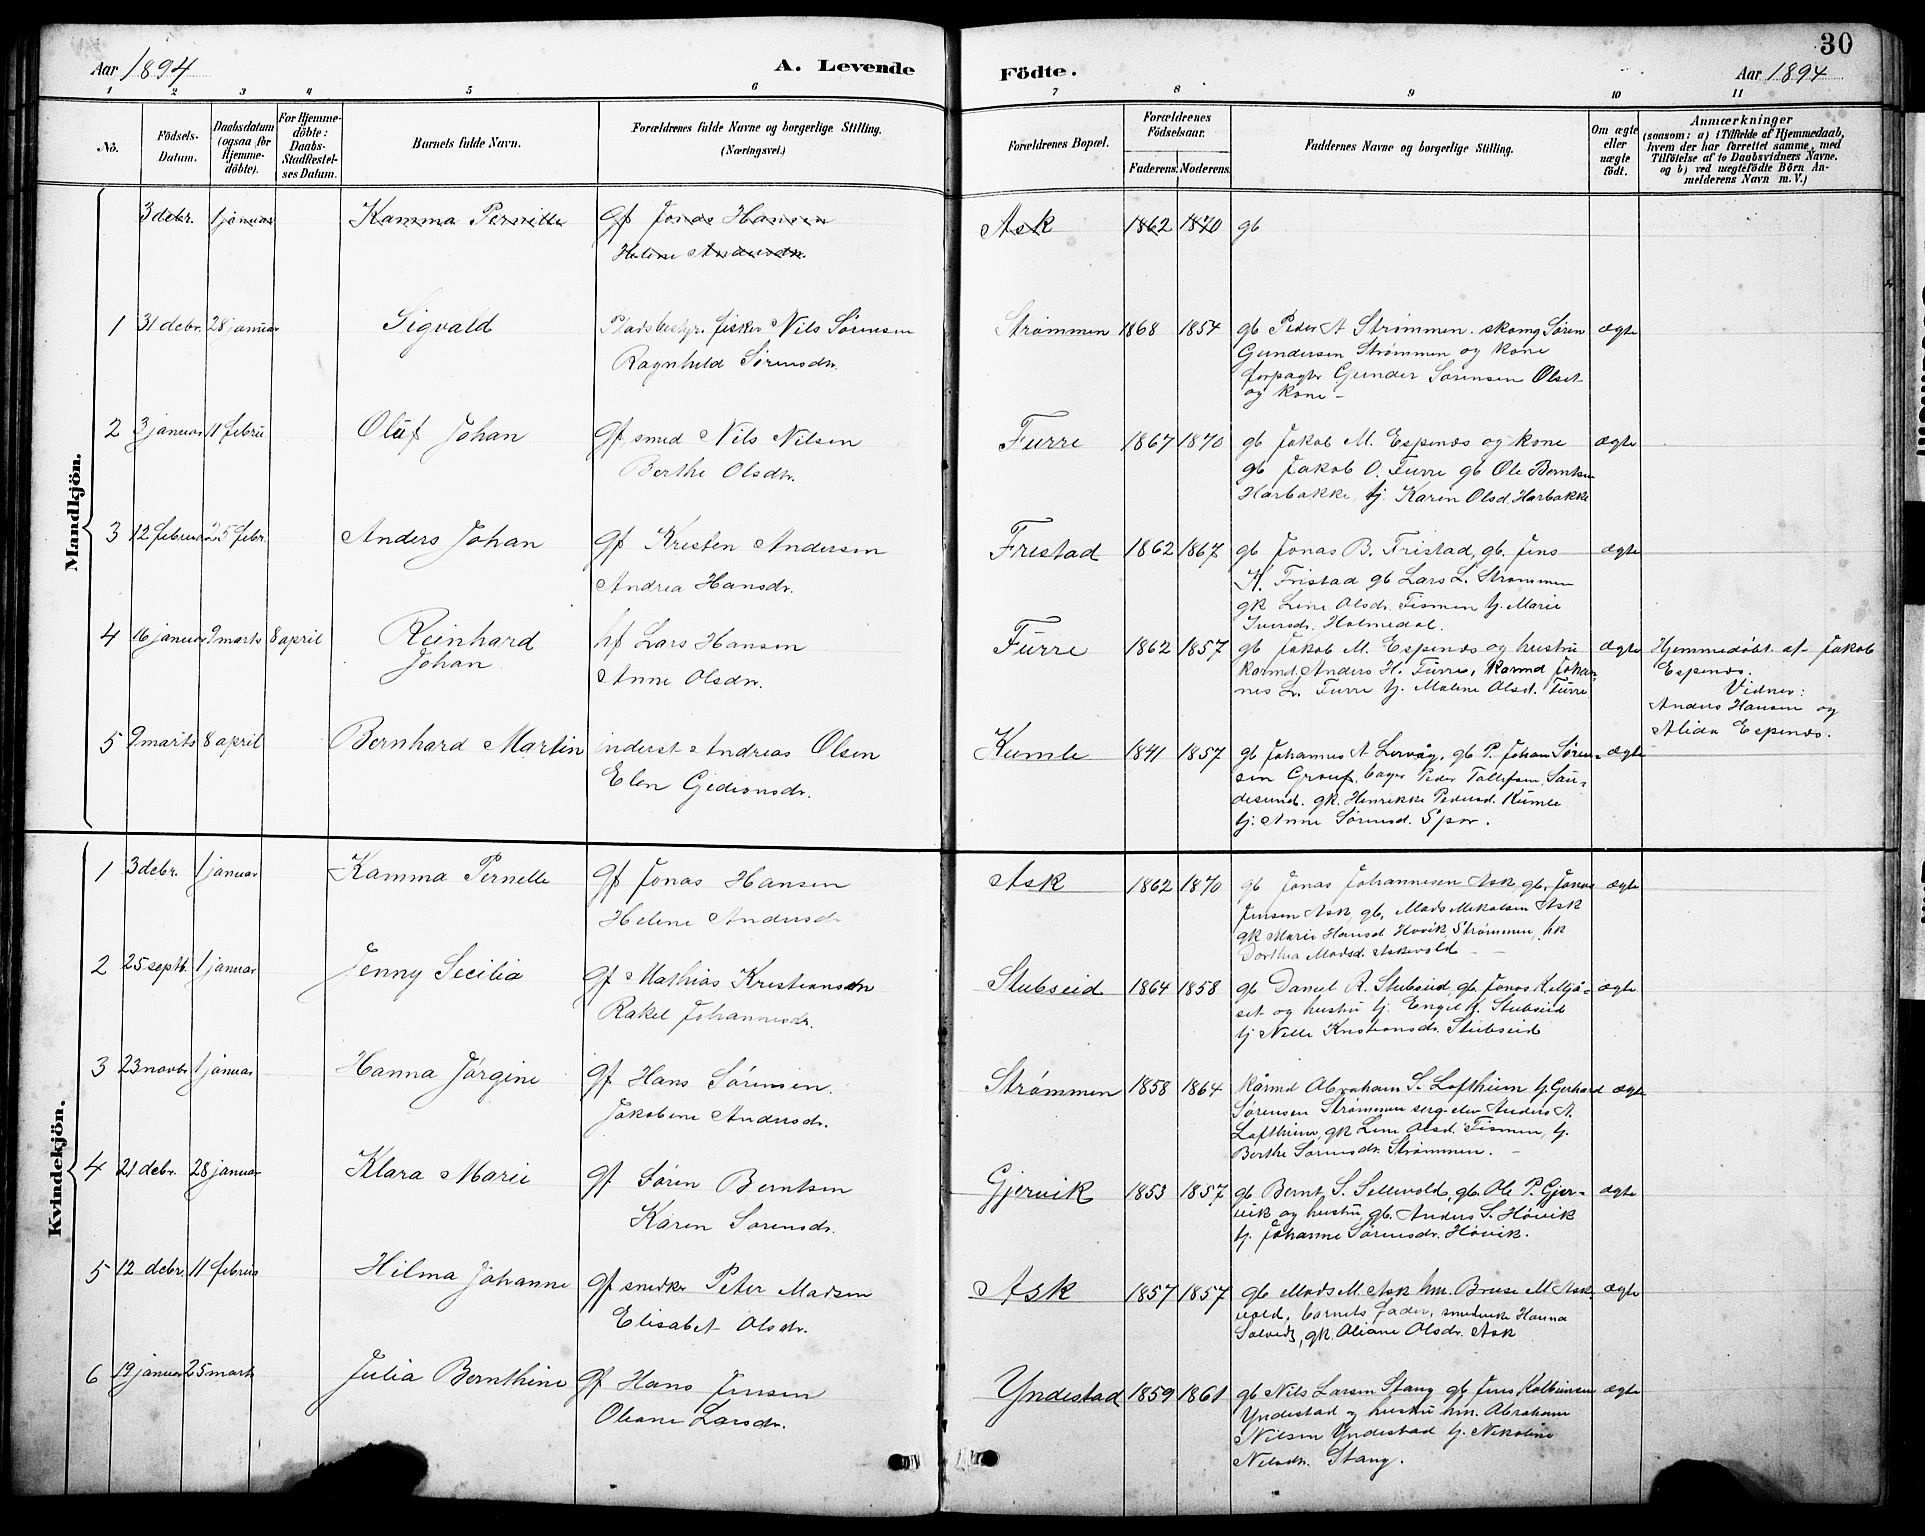 30
Aar 1894
A. Levende
Födte.
Aar 1894
1 2 3 4 5 6 7 8 9 10 11
No.
Födsels-
Datum.
Daabsdatum
(ogsaa for
Hjemme-
döbte).
For Hjemme-
döbte:
Daabs-
Stadfestel-
ses Datum.
Barnets fulde Navn.
Forældrenes fulde Navne og borgerlige Stilling.
(Næringsvei.)
Forældrenes Bopæl.
Forældrenes
Födselsaar.
Faderens. Moderens.
Faddernes Navne og borgerlige Stilling.
Om ægte
eller
uægte
født.
Anmærkninger
(saasom: a) i Tilfælde af Hjemmedaab,
hvem der har forrettet samme, med
Tilföielse af to Daabsvidners Navne,
og b) ved uægtefödte Börn An-
melderens Navn m. V.)
Mandkjön.
3 debr. 1 januar Kamma Pernille gf Jonas Hansen Ask 1862 1870 gb
Helene Andersdr.
1 31 debr. 28 januar Sigvald Pladsbestyr. fisker Nils Sørensen Strømmen 1868 1854 gb Peder A Strømmen. skomg Søren ægte
Ragnhild Sørensdr. Gundersen Strømmen og kone
forpagter Gunder Sørensen Olset
og kone –
2 3 januar 11 febru Oluf Johan gf smed Nils Nilsen Furre 1867 1870 gb Jakob M. Espenæs og kone ægte
Berthe Olsdr. gb Jakob O. Furre gb Ole Berntsen
Harbakke, tj. Karen Olsd. Harbakke
3 12 februar 25 febr. Anders Johan gf Kristen Andersen Frestad 1862 1867 gb Jonas B. Fristad, gb. Jens ægte
Andrea Hansdr. K. Fristad gb Lars L. Strømmen
gk Line Olsdr. Tismen tj. Marie
Iversdr. Holmedal.
4 16 januar 9 marts 8 april Reinhard hf Lars Hansen Furre 1862 1857 gb Jakob M. Espenæs og hustru ægte Hjemmedøbt af Jakob
Johan Anne Olsdr. karmd. Anders H. Furre, karmd Johan- Espenæs.
nes L. Furre tj. Malene Olsd. Furre Vidner:
Anders Hansen og
Alida Espenæs.
5 9 marts 8 april Bernhard Martin inderst Andreas Olsen Kumle 1841 1857 gb Johannes A Lervåg, gb P. Johan Søren- ægte
Elen Gidionsdr. sen Grouf, bager Peder Tollefsen, Sau-
desund. gk. Henrikke Pedersd. Kumle
tj. Anne Sørensd. Spor.
Kvindekjön.
1 3 debr. 1 januar Kamma Pernelle gf Jonas Hansen Ask 1862 1870 gb Jonas Johannesen Ask, gb. Jonas ægte
Helene Andersdr Jensen Ask, gb. Mads Mikalsen Ask
gk Marie Hansd Hovik Strømmen,
Dorthea Madsd. Askevold –
2 25 septb. 1 januar Jenny Secilia gf Mathias Kristiansen Stubseid 1864 1858 gb Daniel R. Stubseid, gb. Jonas K. Mjå- ægte
Rakel Johannesdr. set og hustru tj. Engel J. Stubseid
tj Nelle Kristiansdr. Stubseid
3 23 novbr 1 januar Hanna Jørgine gf Hans Sørensen. Strømmen 1858 1864 Karmd Abraham S. Loftheim tj. Gerhard ægte
Jakobine Andersdr. Sørensen Strømmen serg.elev Anders A.
Loftheim, gk Line Olsd. Tismen, tj.
Berthe Sørensdr. Strømmen. –
4 21 debr. 28 januar Klara Marie gf Søren Berntsen Gjervik 1853 1857 gb Bernt S. Sellevold, gb. Ole P. Gjer- ægte
Karen Sørensdr. vik og hustru gb. Anders S. Høvik
tj. Johanne Sørensdr. Høvik.
5 12 debr. 11 februs Hilma Johanne gf snedker Peter Madsen Ask 1857 1857 gb Mads M. Ask hm. Bruse M Ask- ægte
Elisabet Olsdr. vold, barnets fader, Hanna
Solvedt, gk. Oliane Olsdr. Ask
6 19 januar 25 marts Julia Bernthine gf Hans Jensen Yndestad 1859 1861 gb Nils Larsen Stang gb Jens Kolbeinsen ægte
Oliane Larsdr. Yndestad og hustru hm. Abraham
Nilsen Yndestad tj. Nikoline
Nilsdr. Stang.